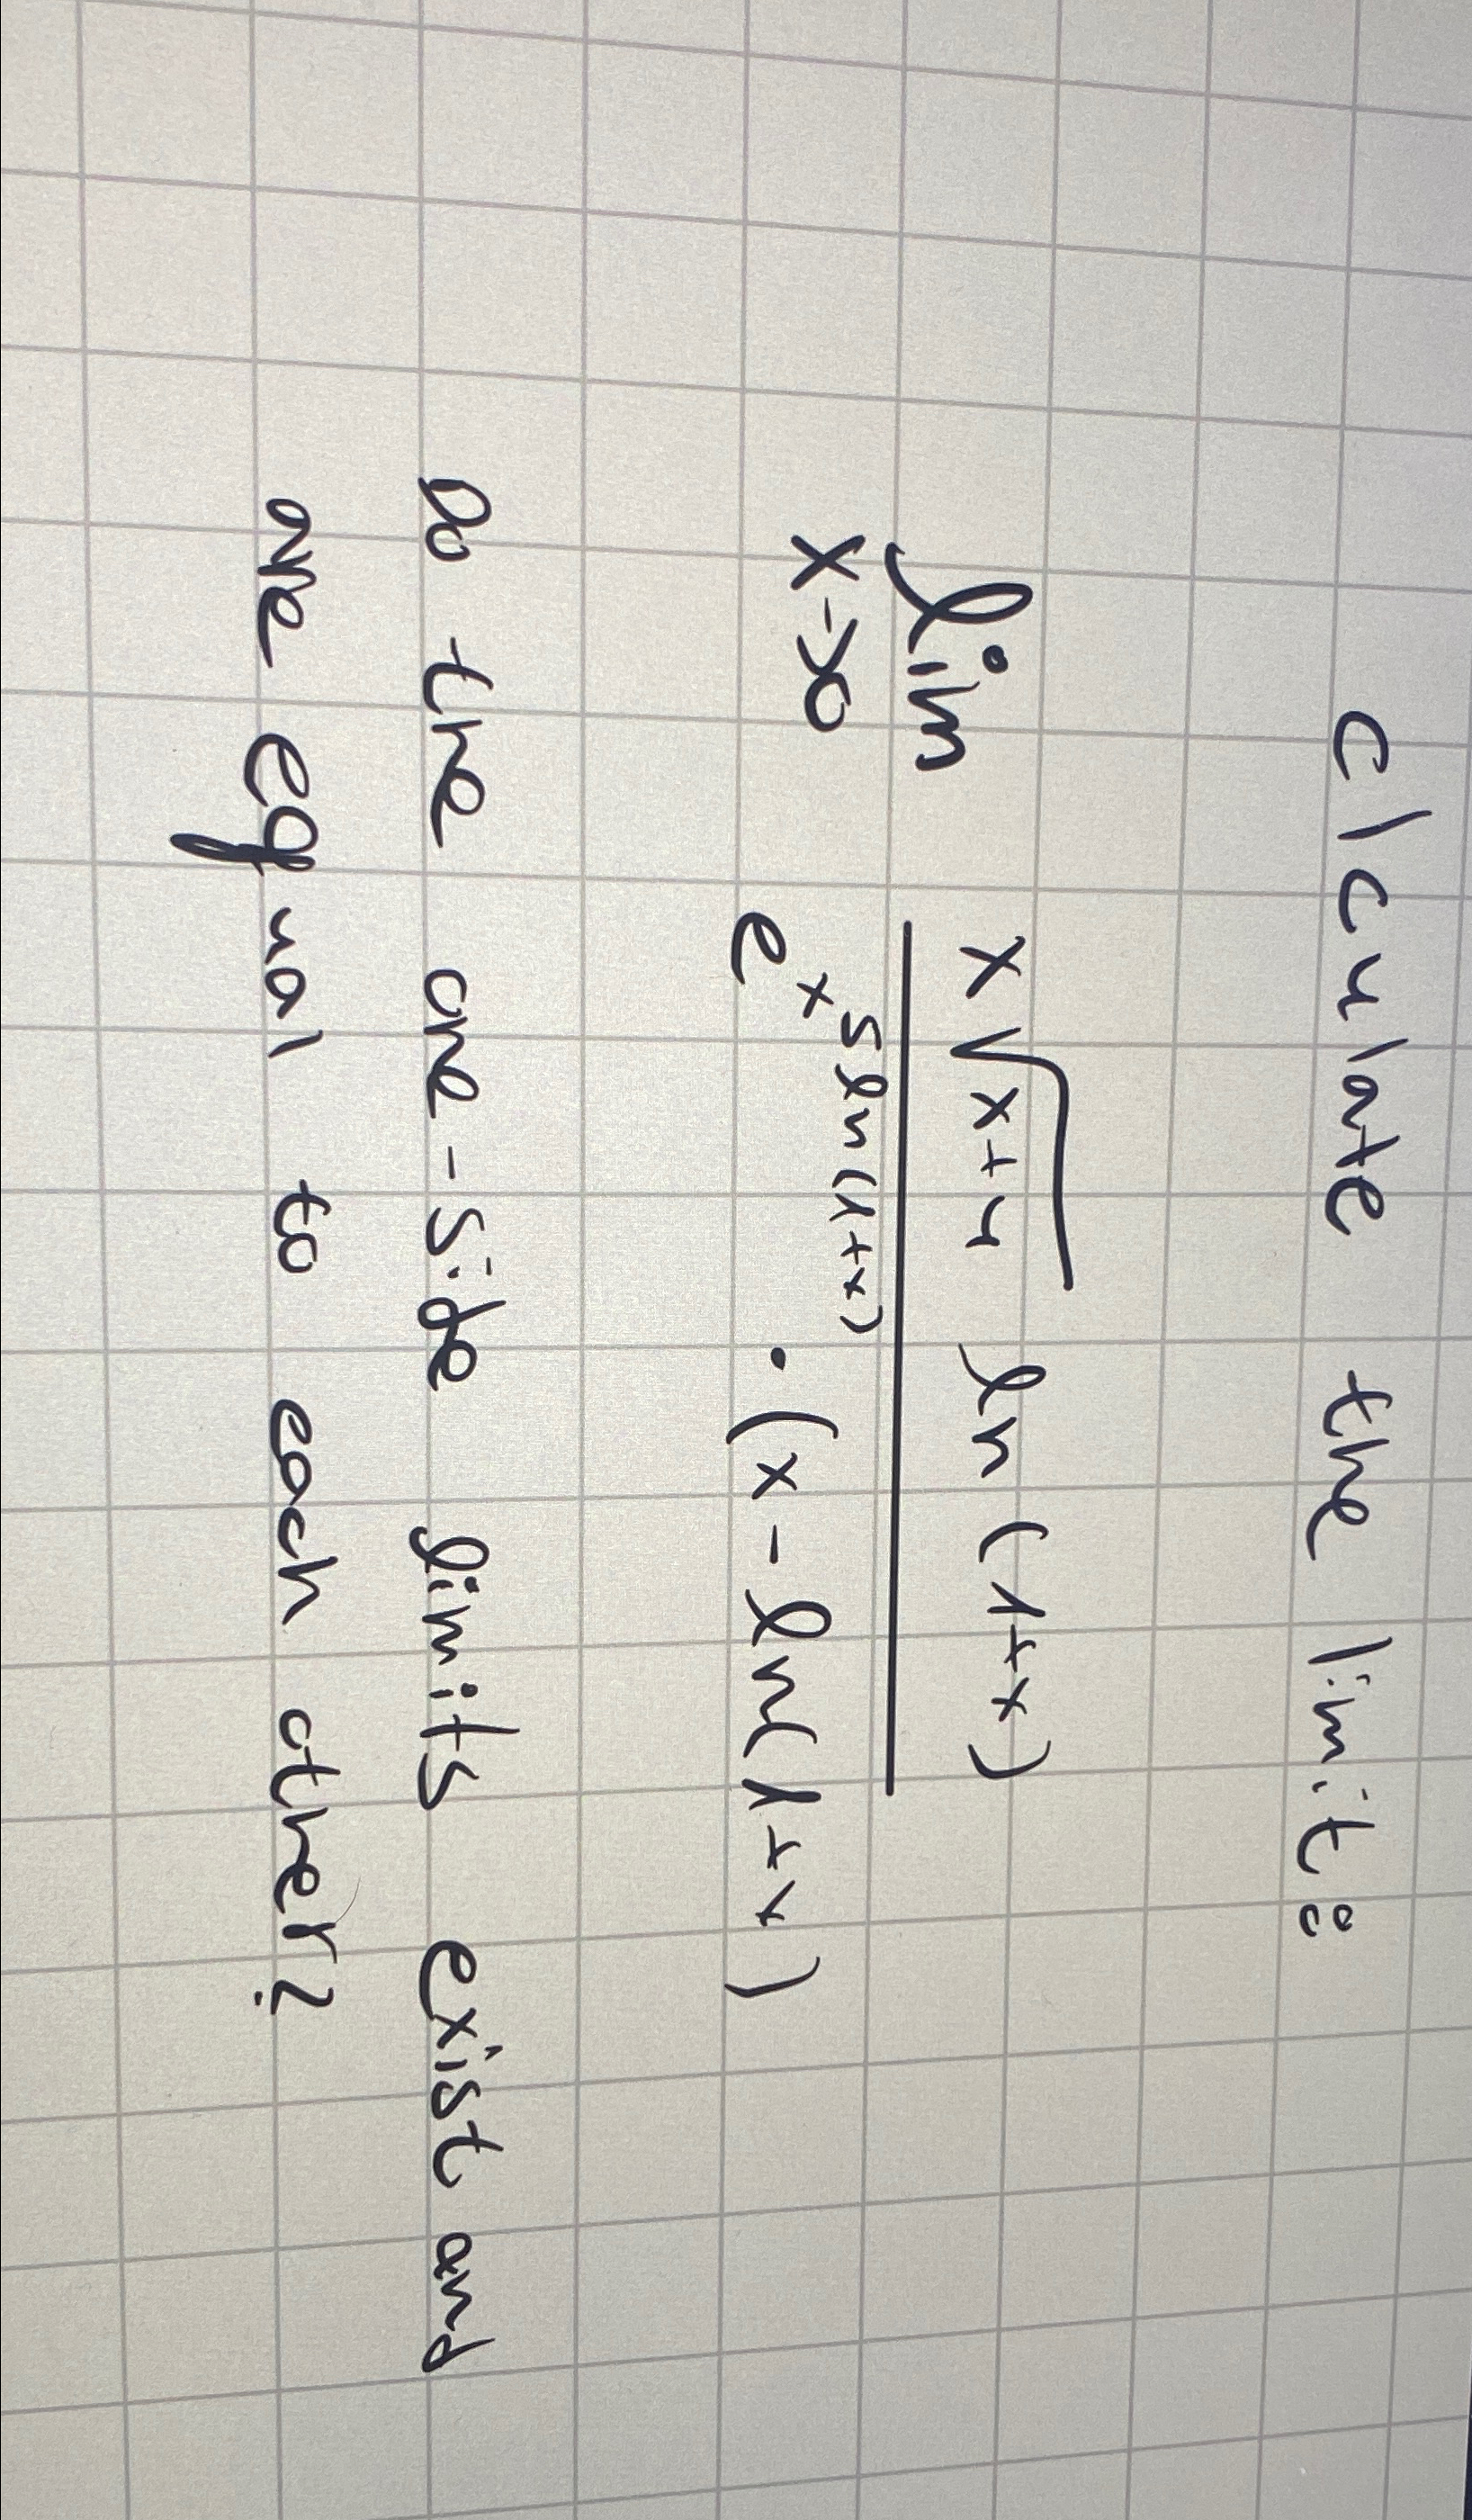 Clculate the limit:
lim x√(x+4) ln(1+x)
x→0 e^x^5 ln(1+x) · (x - ln(1+x)
Do the one-side limits exist and
are equal to each other?